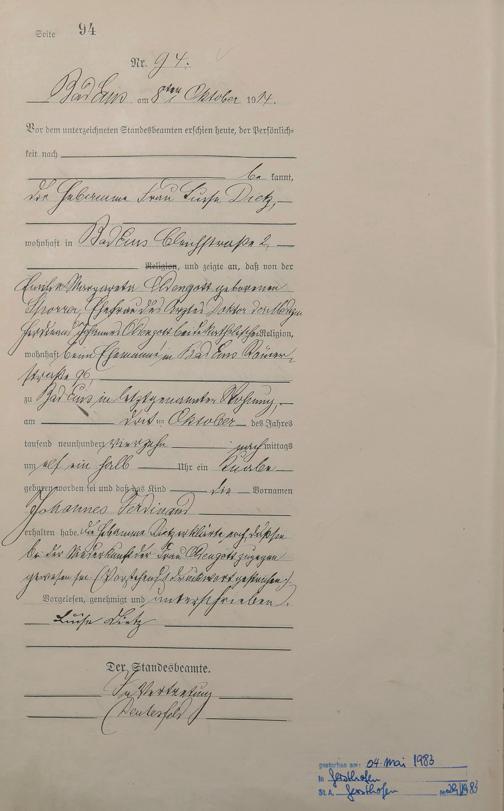 Seite 94
Nr. 94.
Bad Ems am 8ten Oktober 1914.
Vor dem unterzeichneten Standesbeamten erschien heute, der Persönlich-
keit nach
be kannt,
die Hebamme Frau Luise Dietz,
wohnhaft in Bad Ems Bleichstraße 2,
Religion, und zeigte an, daß von der
Margareta geborenen
Ehefrau des Arztes Doktor der Medizin
Ferdinand Johannes beide katholischer Religion,
wohnhaft beim Ehemanne in Bad Ems Römer-
straße 96
zu Bad Ems, in letztgenannter Wohnung,
am Oktober des Jahres
tausend neunhundert vierzehn nachmittags
um elf ein halb Uhr ein Knabe
geboren worden sei und daß das Kind die Vornamen
Johannes Ferdinand
erhalten habe. Die Hebamme Dietz erklärte noch daß sie
bei der Niederkunft der Frau zugegen
gewesen sei. (Vorstehend 1 Druckwort gestrichen.)
Vorgelesen, genehmigt und unterschrieben.
Luise Dietz
Der Standesbeamte.
In Vertretung
gestorben am: 04. Mai 1983
in Gersthofen
St.A. Gersthofen